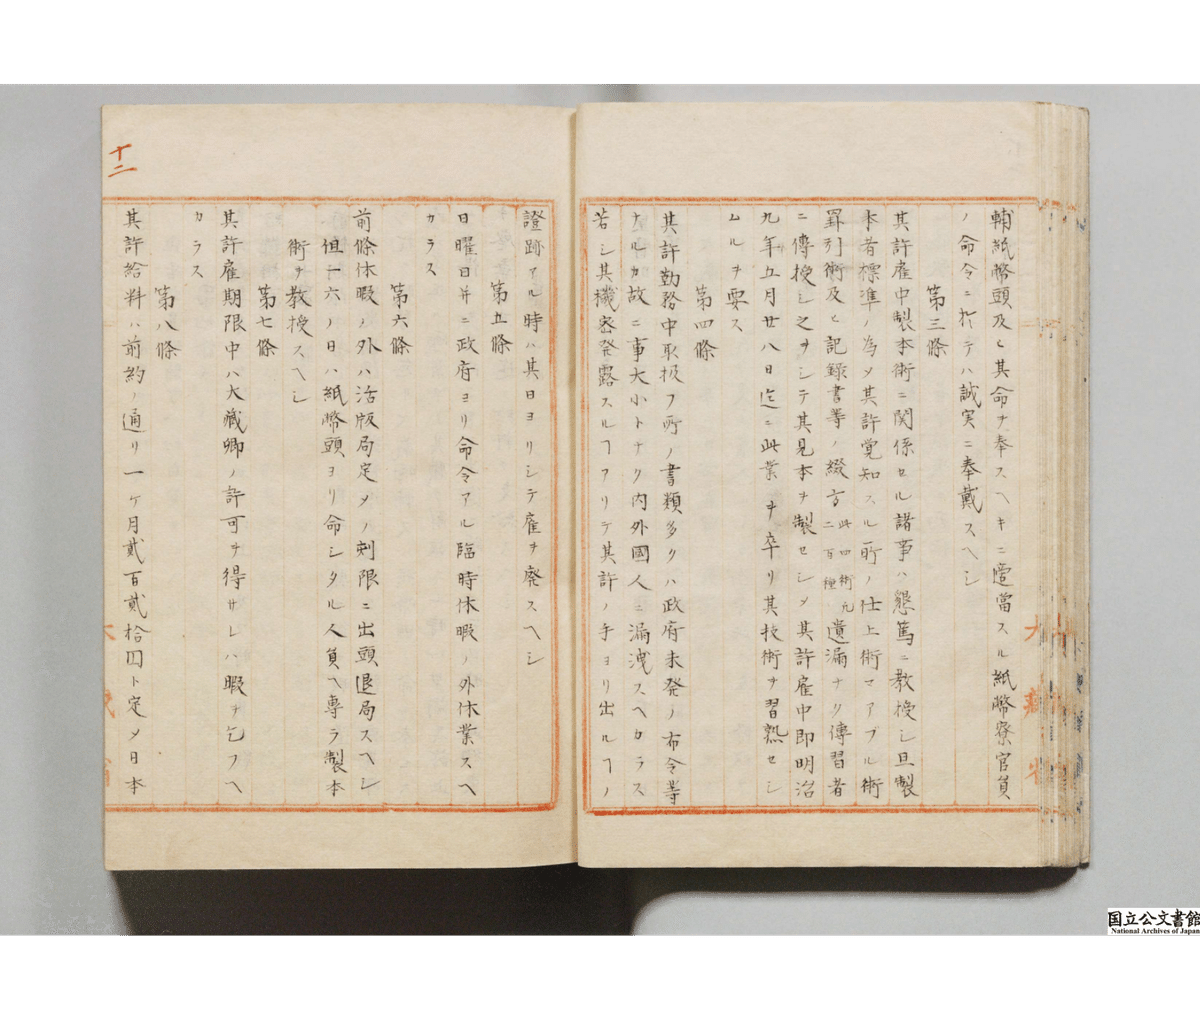 輔紙幣頭及ヒ其命ヲ奉スヘキニ適當スル紙幣寮官員
ノ命令ニ於テハ誠実ニ奉戴スヘシ
第三條
其許雇中製本術ニ関係セル諸事ハ懇篤ニ教授シ且製
本者標準ノ為メ其許覚知スル所ノ仕上術マアブル術
罫引術及ヒ記録書等ノ綴方此四術凡二百種遺漏ナク傳習者
ニ傳授シ之ヲシテ其見本ヲ製セシメ其許雇中即明治
九年五月廿八日迄ニ此業ヲ卒リ其技術ヲ習熟セシ
ムルヲ要ス
第四條
其許勤務中取扱フ所ノ書類多クハ政府未発ノ布令等
ナルカ故ニ事大小トナク内外國人ニ漏洩スヘカラス
若シ其機密発露スルヿアリテ其許ノ手ヨリ出ルヿノ
證跡アル時ハ其日ヨリシテ雇ヲ廃スヘシ
第五條
日曜日并ニ政府ヨリ命令アル臨時休暇ノ外休業スヘ
カラス
第六條
前條休暇ノ外ハ活版局定メノ刻限ニ出頭退局スヘシ
但一六ノ日ハ紙幣頭ヨリ命シタル人員ヘ専ラ製本
術ヲ教授スヘシ
第七條
其許雇期限中ハ大藏卿ノ許可ヲ得サレハ暇ヲ乞フヘ
カラス
第八條
其許給料ハ前約ノ通リ一ケ月貳百貳拾円ト定メ日本
十二
国立公文書館
National Archives of Japan